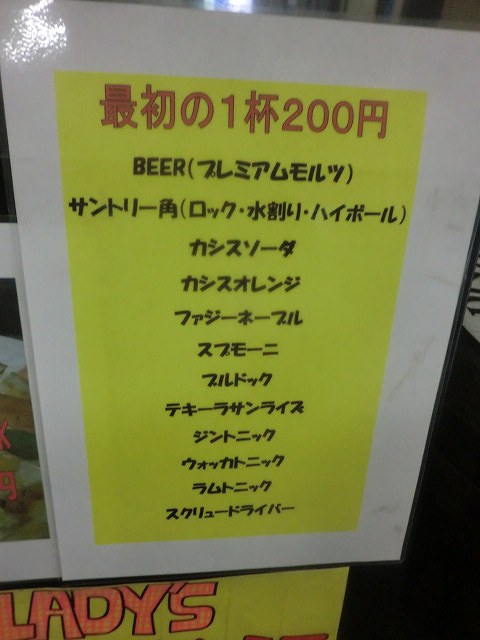 最初の1杯200円
BEER(プレミアムモルツ)
サントリー角(ロック・水割り・ハイボール)
カシスソーダ
カシスオレンジ
ファジーネーブル
スプモーニ
ブルドック
テキーラサンライズ
ジントニック
ウォッカトニック
ラムトニック
スクリュードライバー
円
LADY'S